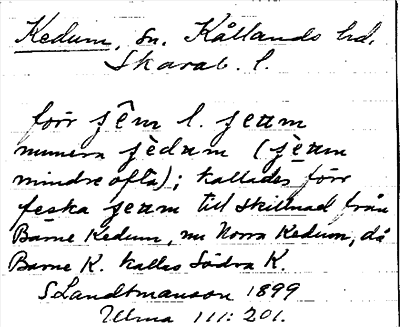 Kedum, sn. Kållands hd.
Skarab. l.
förr jêm l. jeam
numera jèdum (jèam
mindre ofta); kallades förr
feska jeam till skillnad från
Barne Kedum, nu Norra Kedum, då
Barne K. kallas Södra K.
S Landtmanson 1899
Ulma 111: 201.